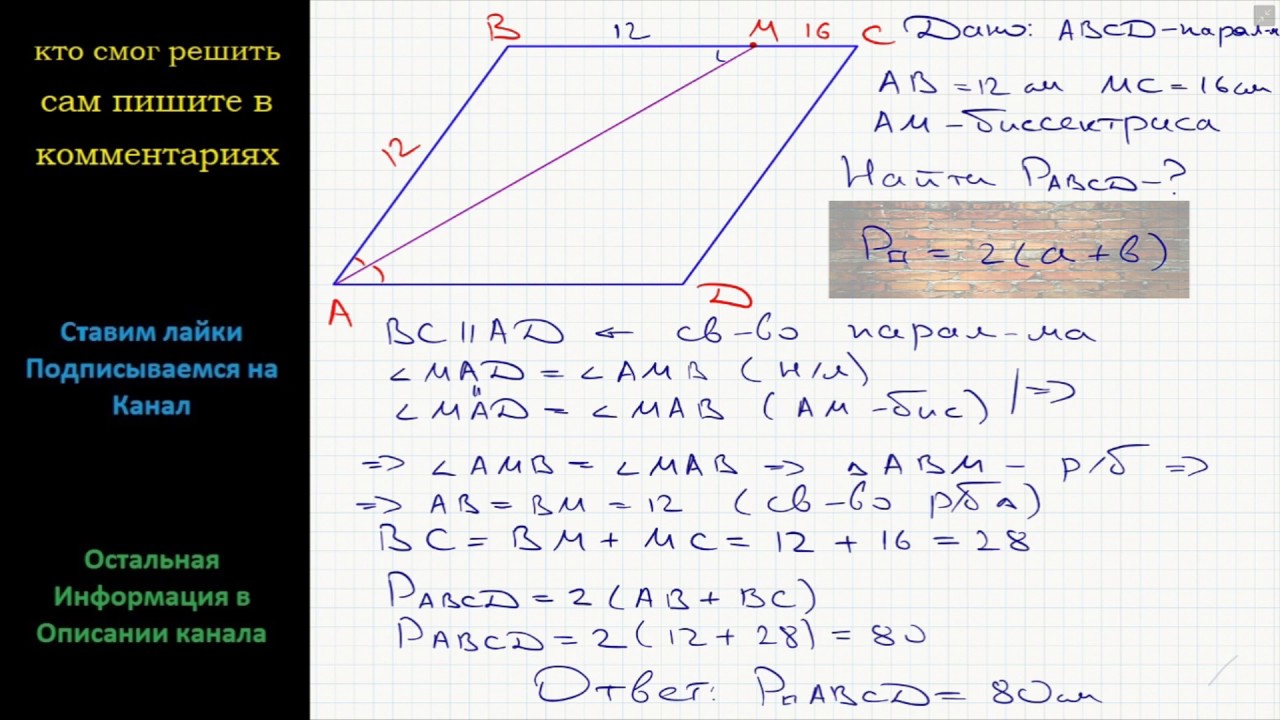 кто смог решить
сам пишите в
комментариях
Ставим лайки
Подписываемся на
Канал
Остальная
Информация в
Описании канала
B 12 M 16 C
12
A
D
Дано: ABCD-парал-м
AB = 12 см MC = 16 см
AM - биссектриса
Найти PABCD-?
P▱ = 2(a + b)
BC || AD ← св-во парал-ма
∠MAD = ∠AMB (н/л)
∠MAD = ∠MAB (AM - бис) | =>
=> ∠AMB = ∠MAB => △ABM - р/б =>
=> AB = BM = 12 (св-во р/б △)
BC = BM + MC = 12 + 16 = 28
PABCD = 2(AB + BC)
PABCD = 2(12 + 28) = 80
Ответ: P▱ABCD = 80см